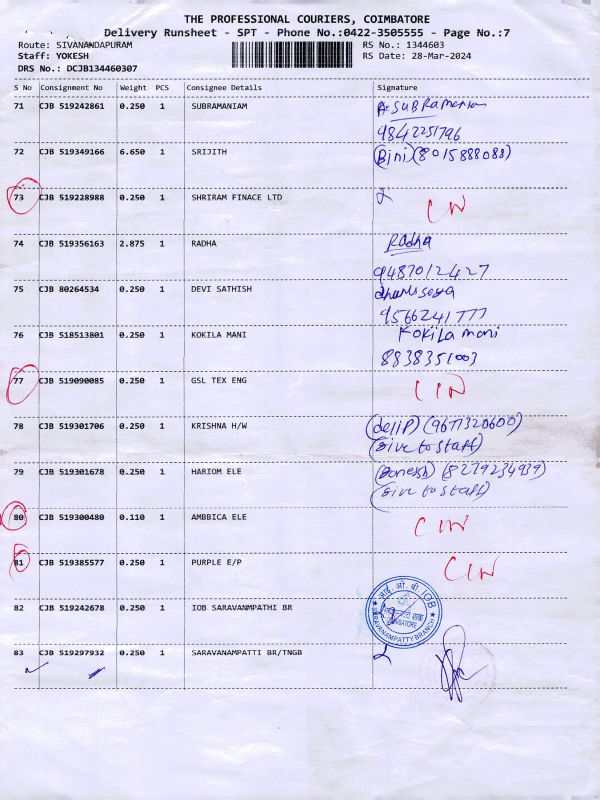 THE PROFESSIONAL COURIERS, COIMBATORE
Delivery Runsheet - SPT - Phone No.:0422-3505555 - Page No.:7
Route: SIVANANDAPURAM RS No.: 1344603
Staff: YOKESH RS Date: 28-Mar-2024
DRS No.: DCJB134460307
S No Consignment No Weight PCS Consignee Details Signature
71 CJB 519242861 0.250 1 SUBRAMANIAM A.SUBRamanian
9842251796
72 CJB 519349166 6.650 1 SRIJITH (Bjni)(8015888088)
73 CJB 519228988 0.250 1 SHRIRAM FINACE LTD
74 CJB 519356163 2.875 1 RADHA Radha
9487012427
75 CJB 80264534 0.250 1 DEVI SATHISH
9566241777
76 CJB 518513801 0.250 1 KOKILA MANI Kokila mani
8838351003
77 CJB 519090085 0.250 1 GSL TEX ENG CIN
78 CJB 519301706 0.250 1 KRISHNA H/W (delip) (9677320600)
(Give to staff)
79 CJB 519301678 0.250 1 HARIOM ELE (Ganesh) (8279234939)
(Give to staff)
80 CJB 519300480 0.110 1 AMBBICA ELE CIN
81 CJB 519385577 0.250 1 PURPLE E/P CIN
82 CJB 519242678 0.250 1 IOB SARAVANMPATHI BR
आई ओ बी IOB
COIMBATORE
SARAVANAMPATTY BRANCH
83 CJB 519297932 0.250 1 SARAVANAMPATTI BR/TNGB